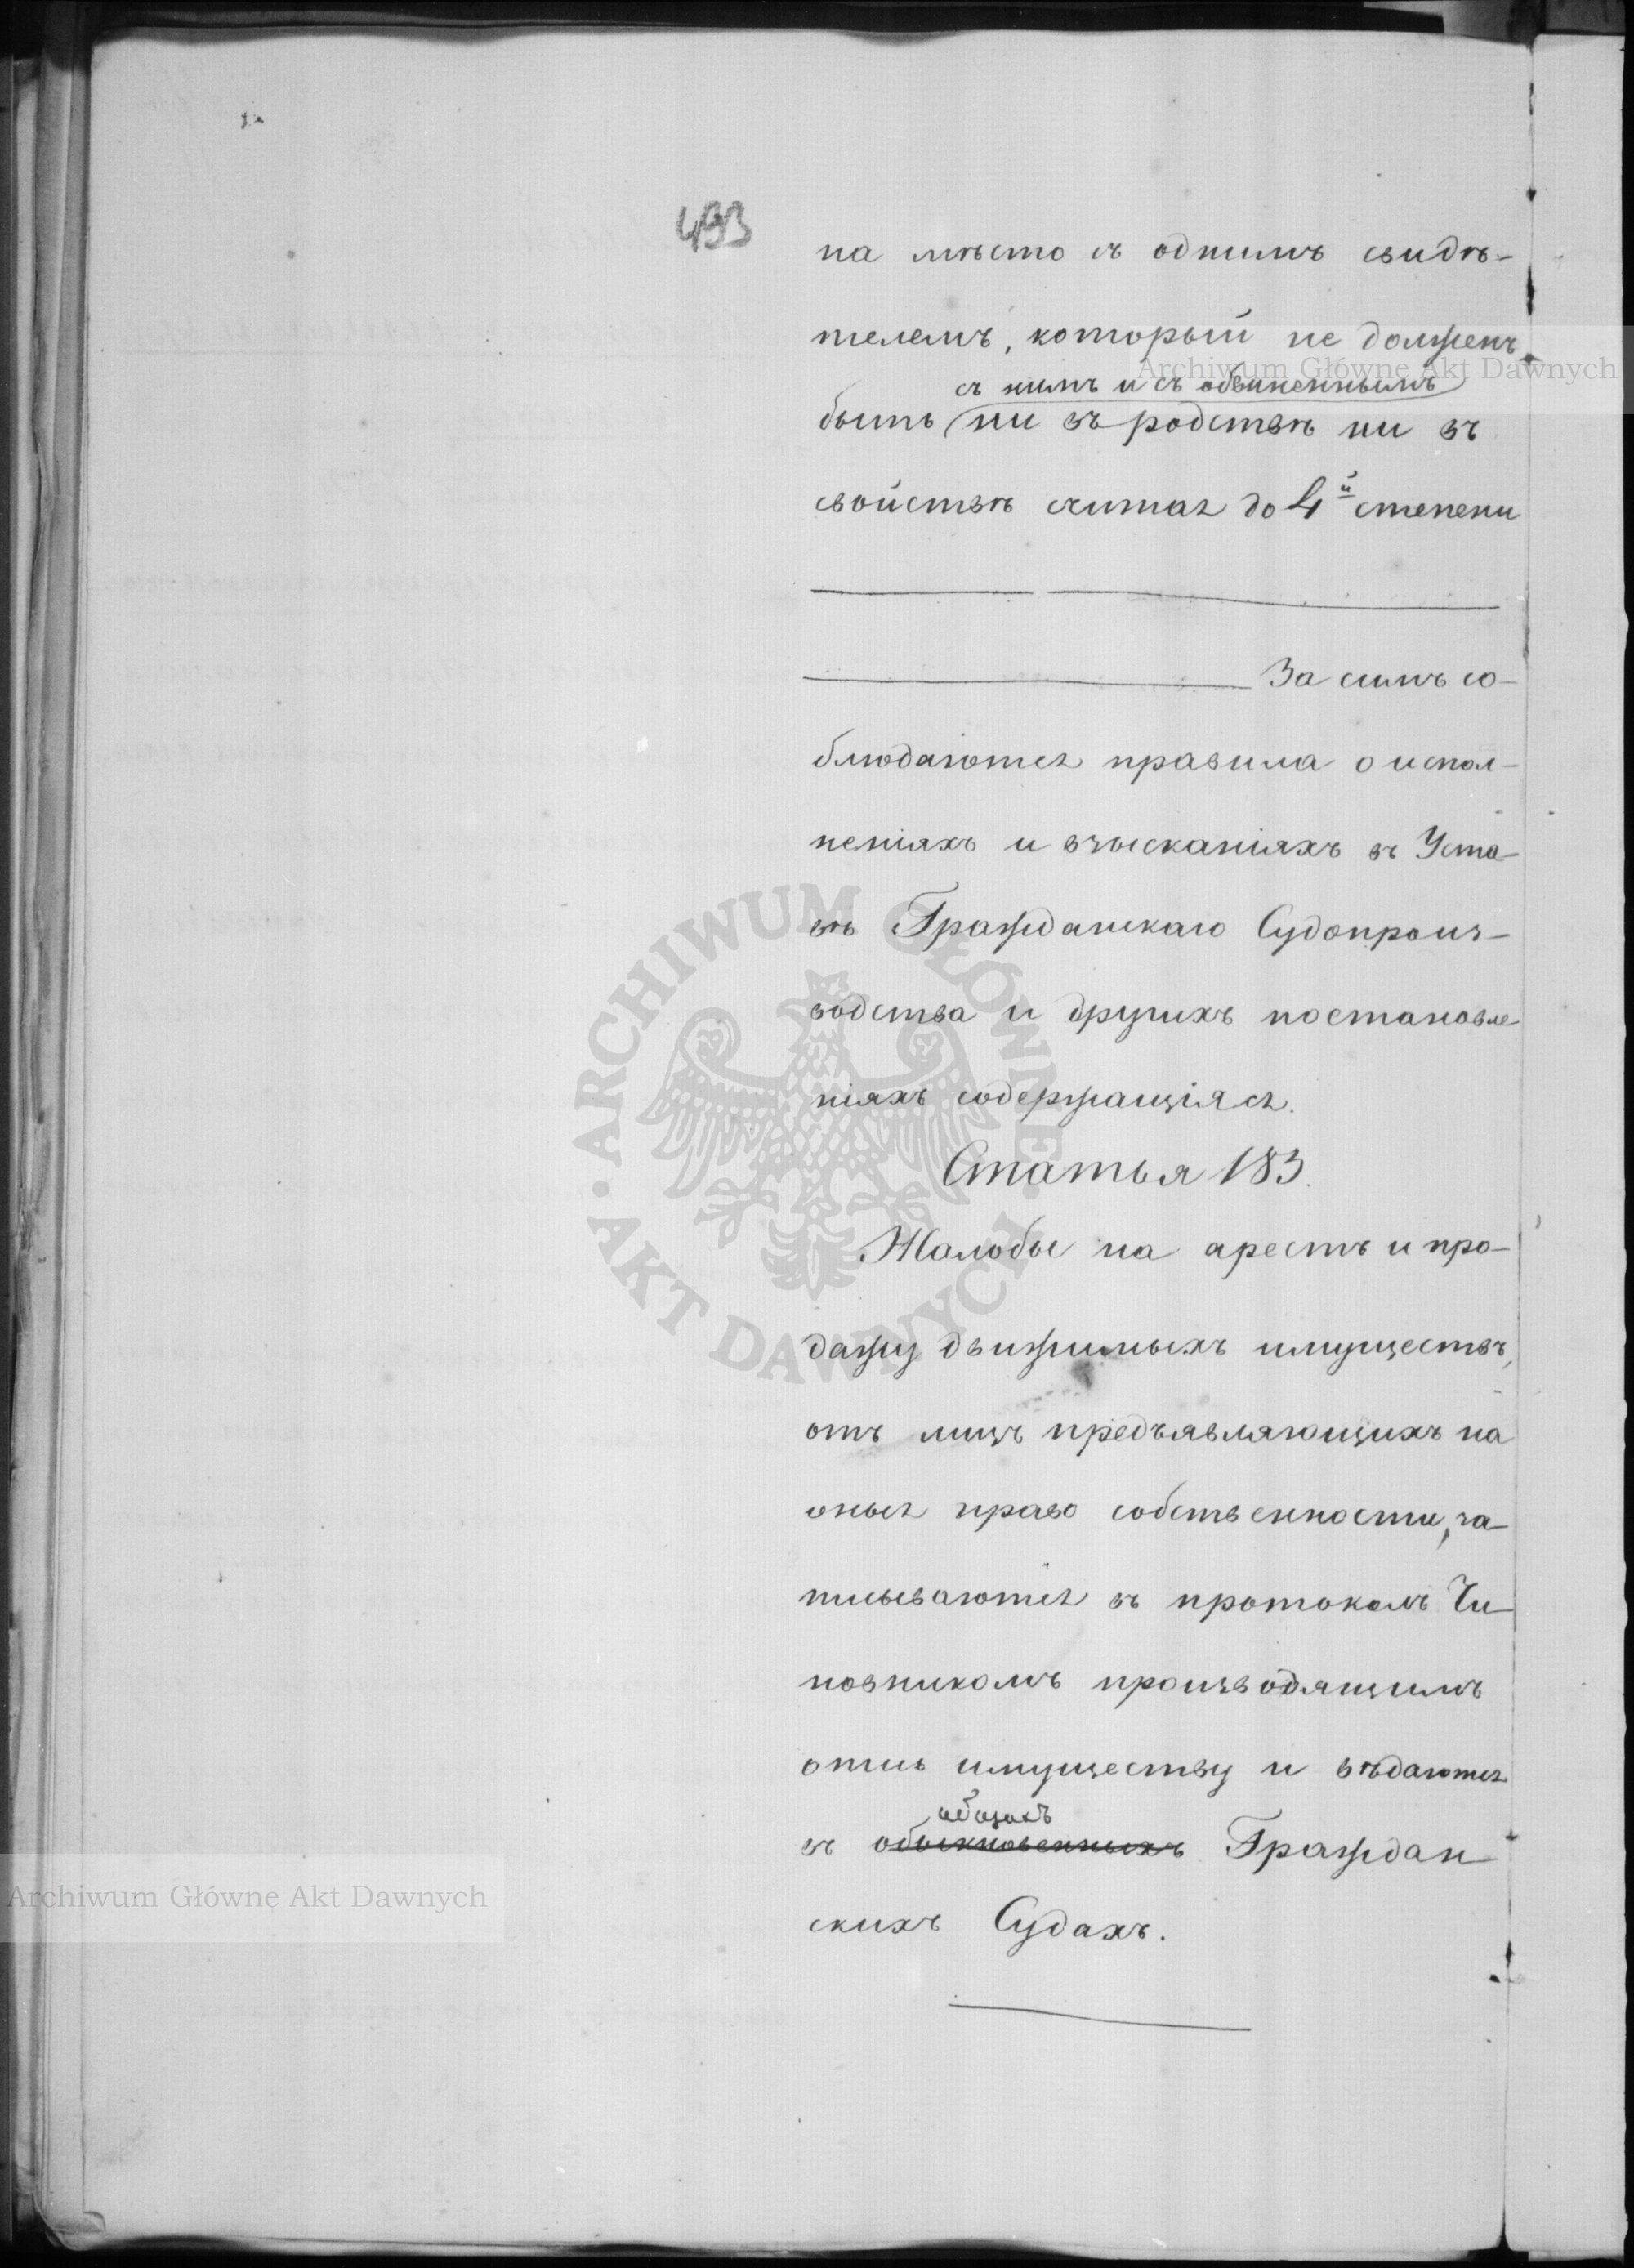 433
на мѣсто съ однимъ свидѣ-
телемъ, который не долженъ
съ нимъ и съ обвиненнымъ
быть ни въ родствѣ ни въ
свойствѣ считая до 4й степени
За симъ со-
блюдаются правила о испол-
неніяхъ и взысканіяхъ въ Уста-
вѣ Гражданскаго Судопроиз-
водства и другихъ постановле
ніяхъ содержащіяся.
Статья 183.
Жалобы на арестъ и про-
дажу движимыхъ имуществъ,
отъ лицъ предъявляющихъ на
оныя право собственности, за-
писываются въ протоколъ Чи-
новникомъ производящимъ
опись имуществу и вѣдаются
общихъ
въ обыкновенныхъ Граждан
скихъ Судахъ.
Archiwum Główne Akt Dawnych
ARCHIWUM GŁÓWNE AKT DAWNYCH
Archiwum Główne Akt Dawnych